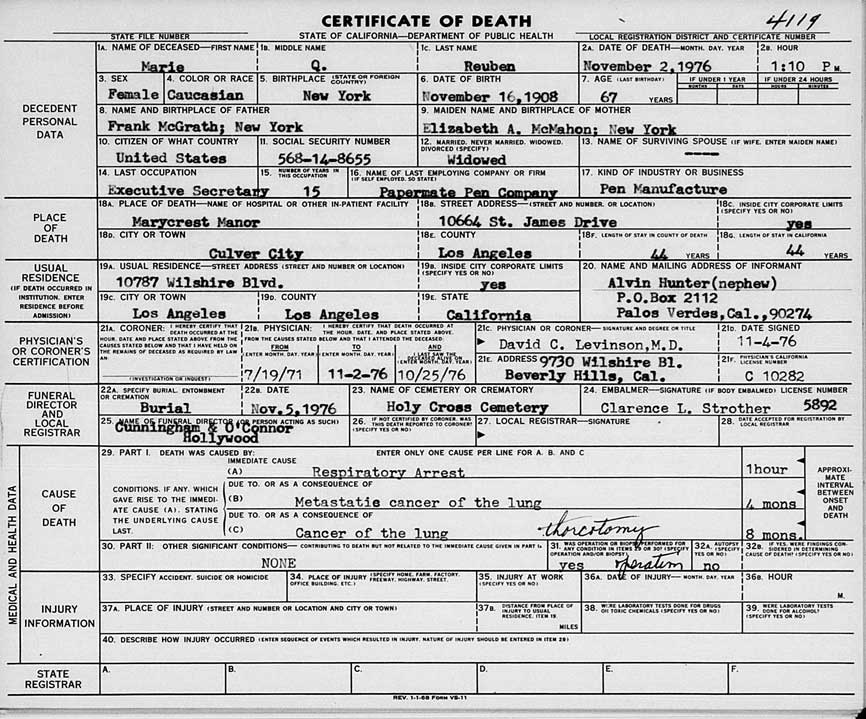 CERTIFICATE OF DEATH
4119
STATE FILE NUMBER
STATE OF CALIFORNIA—DEPARTMENT OF PUBLIC HEALTH
LOCAL REGISTRATION DISTRICT AND CERTIFICATE NUMBER
DECEDENT PERSONAL DATA
1A. NAME OF DECEASED—FIRST NAME
Marie
1B. MIDDLE NAME
Q.
1C. LAST NAME
Reuben
2A. DATE OF DEATH—MONTH, DAY, YEAR
November 2, 1976
2B. HOUR
1:10 P M.
3. SEX
Female
4. COLOR OR RACE
Caucasian
5. BIRTHPLACE (STATE OR FOREIGN COUNTRY)
New York
6. DATE OF BIRTH
November 16, 1908
7. AGE (LAST BIRTHDAY)
67 YEARS
IF UNDER 1 YEAR
MONTHS DAYS
IF UNDER 24 HOURS
HOURS MINUTES
8. NAME AND BIRTHPLACE OF FATHER
Frank McGrath; New York
9. MAIDEN NAME AND BIRTHPLACE OF MOTHER
Elizabeth A. McMahon; New York
10. CITIZEN OF WHAT COUNTRY
United States
11. SOCIAL SECURITY NUMBER
568-14-8655
12. MARRIED, NEVER MARRIED, WIDOWED, DIVORCED (SPECIFY)
Widowed
13. NAME OF SURVIVING SPOUSE (IF WIFE, ENTER MAIDEN NAME)
----
14. LAST OCCUPATION
Executive Secretary
15. NUMBER OF YEARS IN THIS OCCUPATION
15
16. NAME OF LAST EMPLOYING COMPANY OR FIRM (IF SELF EMPLOYED, SO STATE)
Papermate Pen Company
17. KIND OF INDUSTRY OR BUSINESS
Pen Manufacture
PLACE OF DEATH
18A. PLACE OF DEATH—NAME OF HOSPITAL OR OTHER IN-PATIENT FACILITY
Marycrest Manor
18B. STREET ADDRESS—(STREET AND NUMBER, OR LOCATION)
10664 St. James Drive
18C. INSIDE CITY CORPORATE LIMITS (SPECIFY YES OR NO)
yes
18D. CITY OR TOWN
Culver City
18E. COUNTY
Los Angeles
18F. LENGTH OF STAY IN COUNTY OF DEATH
44 YEARS
18G. LENGTH OF STAY IN CALIFORNIA
44 YEARS
USUAL RESIDENCE
(IF DEATH OCCURRED IN INSTITUTION, ENTER RESIDENCE BEFORE ADMISSION)
19A. USUAL RESIDENCE—STREET ADDRESS (STREET AND NUMBER OR LOCATION)
10787 Wilshire Blvd.
19B. INSIDE CITY CORPORATE LIMITS (SPECIFY YES OR NO)
yes
20. NAME AND MAILING ADDRESS OF INFORMANT
Alvin Hunter(nephew)
P.O.Box 2112
Palos Verdes,Cal.,90274
19C. CITY OR TOWN
Los Angeles
19D. COUNTY
Los Angeles
19E. STATE
California
PHYSICIAN'S OR CORONER'S CERTIFICATION
21A. CORONER: I HEREBY CERTIFY THAT DEATH OCCURRED AT THE HOUR, DATE AND PLACE STATED ABOVE FROM THE CAUSES STATED BELOW AND THAT I HAVE HELD ON THE REMAINS OF DECEASED AS REQUIRED BY LAW AN
(INVESTIGATION OR INQUEST)
21B. PHYSICIAN: I HEREBY CERTIFY THAT DEATH OCCURRED AT THE HOUR, DATE, AND PLACE STATED ABOVE, FROM THE CAUSES STATED BELOW AND THAT I ATTENDED THE DECEASED:
FROM (ENTER MONTH, DAY, YEAR)
7/19/71
TO (ENTER MONTH, DAY, YEAR)
11-2-76
AND I LAST SAW THE DECEASED ALIVE ON (ENTER MONTH, DAY, YEAR)
10/25/76
21C. PHYSICIAN OR CORONER—SIGNATURE AND DEGREE OR TITLE
David C. Levinson,M.D.
21D. DATE SIGNED
11-4-76
21E. ADDRESS 9730 Wilshire Bl.
Beverly Hills, Cal.
21F. PHYSICIAN'S CALIFORNIA LICENSE NUMBER
C 10282
FUNERAL DIRECTOR AND LOCAL REGISTRAR
22A. SPECIFY BURIAL, ENTOMBMENT OR CREMATION
Burial
22B. DATE
Nov.5,1976
23. NAME OF CEMETERY OR CREMATORY
Holy Cross Cemetery
24. EMBALMER—SIGNATURE (IF BODY EMBALMED) LICENSE NUMBER
Clarence L. Strother 5892
25. NAME OF FUNERAL DIRECTOR (OR PERSON ACTING AS SUCH)
Cunningham & O'Connor
Hollywood
26. IF NOT CERTIFIED BY CORONER, WAS THIS DEATH REPORTED TO CORONER? (SPECIFY YES OR NO)
27. LOCAL REGISTRAR—SIGNATURE
28. DATE ACCEPTED FOR REGISTRATION BY LOCAL REGISTRAR
MEDICAL AND HEALTH DATA
CAUSE OF DEATH
29. PART I. DEATH WAS CAUSED BY: ENTER ONLY ONE CAUSE PER LINE FOR A, B, AND C
IMMEDIATE CAUSE
(A) Respiratory Arrest
1hour
CONDITIONS, IF ANY, WHICH GAVE RISE TO THE IMMEDIATE CAUSE (A), STATING THE UNDERLYING CAUSE LAST.
DUE TO, OR AS A CONSEQUENCE OF
(B) Metastatic cancer of the lung
4 mons
DUE TO, OR AS A CONSEQUENCE OF
(C) Cancer of the lung
8 mons.
APPROXIMATE INTERVAL BETWEEN ONSET AND DEATH
30. PART II: OTHER SIGNIFICANT CONDITIONS—CONTRIBUTING TO DEATH BUT NOT RELATED TO THE IMMEDIATE CAUSE GIVEN IN PART I.
NONE
thorcotomy
31. WAS OPERATION OR BIOPSY PERFORMED FOR ANY CONDITION IN ITEMS 29 OR 30? (SPECIFY OPERATION AND/OR BIOPSY)
yes operation
32A. AUTOPSY (SPECIFY YES OR NO)
no
32B. IF YES, WERE FINDINGS CONSIDERED IN DETERMINING CAUSE OF DEATH? (SPECIFY YES OR NO)
INJURY INFORMATION
33. SPECIFY ACCIDENT, SUICIDE OR HOMICIDE
34. PLACE OF INJURY (SPECIFY HOME, FARM, FACTORY, FREEWAY, HIGHWAY, STREET, OFFICE BUILDING, ETC.)
35. INJURY AT WORK (SPECIFY YES OR NO)
36A. DATE OF INJURY—MONTH, DAY, YEAR
36B. HOUR
M.
37A. PLACE OF INJURY (STREET AND NUMBER OR LOCATION AND CITY OR TOWN)
37B. DISTANCE FROM PLACE OF INJURY TO USUAL RESIDENCE, ITEM 19.
MILES
38. WERE LABORATORY TESTS DONE FOR DRUGS OR TOXIC CHEMICALS (SPECIFY YES OR NO)
39. WERE LABORATORY TESTS DONE FOR ALCOHOL? (SPECIFY YES OR NO)
40. DESCRIBE HOW INJURY OCCURRED (ENTER SEQUENCE OF EVENTS WHICH RESULTED IN INJURY. NATURE OF INJURY SHOULD BE ENTERED IN ITEM 29)
STATE REGISTRAR
A. B. C. D. E. F.
REV. 1-1-68 FORM VS-11